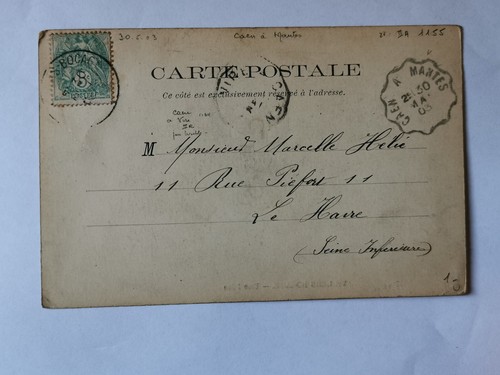 30.5.03 Caen à Mantes N. IR 1155
CARTE POSTALE
Ce côté est exclusivement réservé à l'adresse.
CAEN A MANTES
30
MAI
03
CAEN
Caen
à Vire
IR
M Monsieur Marcelle Hélie
11 Rue Piéfort 11
Le Havre
(Seine Inférieure)
1-